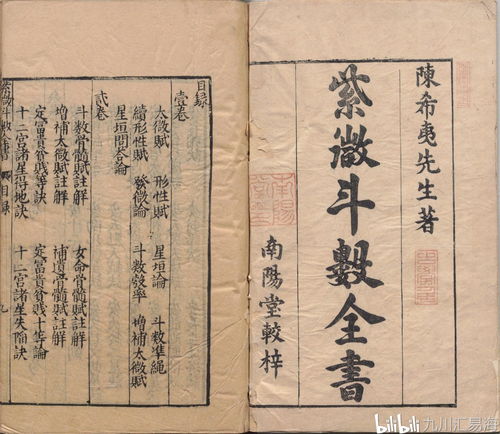 陳希夷先生著
紫微斗數全書
南陽堂較梓
目錄
壹卷
太微賦 形性賦 星垣論 斗數準繩
續形性賦 發微論 斗數發率 增補太微賦
星垣問答論
貳卷
斗數骨髓賦註解 女命骨髓賦註解
增補太微賦註解 補遺骨髓賦註解
定富貴貧賤等訣 定富貴貧賤十等論
十二宮諸星得地訣 十二宮諸星失陷訣
紫微斗數全書 目錄
九
bilibili 九川汇易海